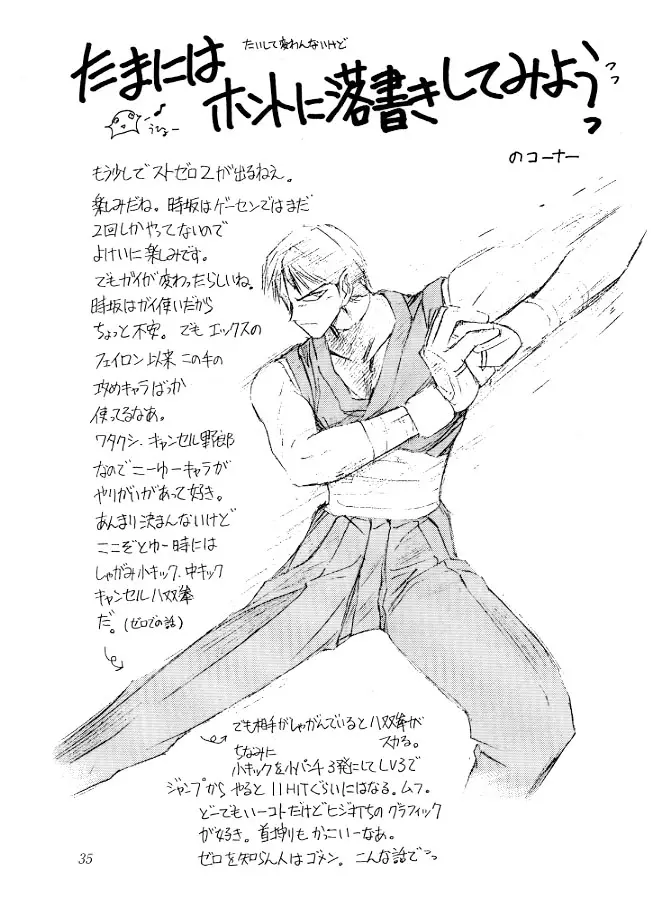 たいして変わんないけど
たまには
ホントに落書きしてみようっ
うひょー
のコーナー
もう少しでストゼロ2が出るねえ。
楽しみだね。時坂はゲーセンではまだ
2回しかやってないので
よけいに楽しみです。
でもガイが変わったらしいね。
時坂はガイ使いだから
ちょっと不安。でもエックスの
フェイロン以来この手の
攻めキャラばっか
使ってるなあ。
ワタクシ、キャンセル野郎
なのでこーゆーキャラが
やりがいがあって好き。
あんまり決まんないけど
ここぞとゆー時には
しゃがみ小キック、中キック
キャンセル八双拳
だ。(ゼロでの話)
でも相手がしゃがんでいると八双拳が
スカる。
ちなみに
小キックを小パンチ3発にしてLV3で
ジャンプからやると11HITぐらいにはなる。ムフ。
どーでもいーコトだけどヒジ打ちのグラフィック
が好き。首拊りもかっこいーなあ。
ゼロを知らん人はゴメン。こんな話でっ
35